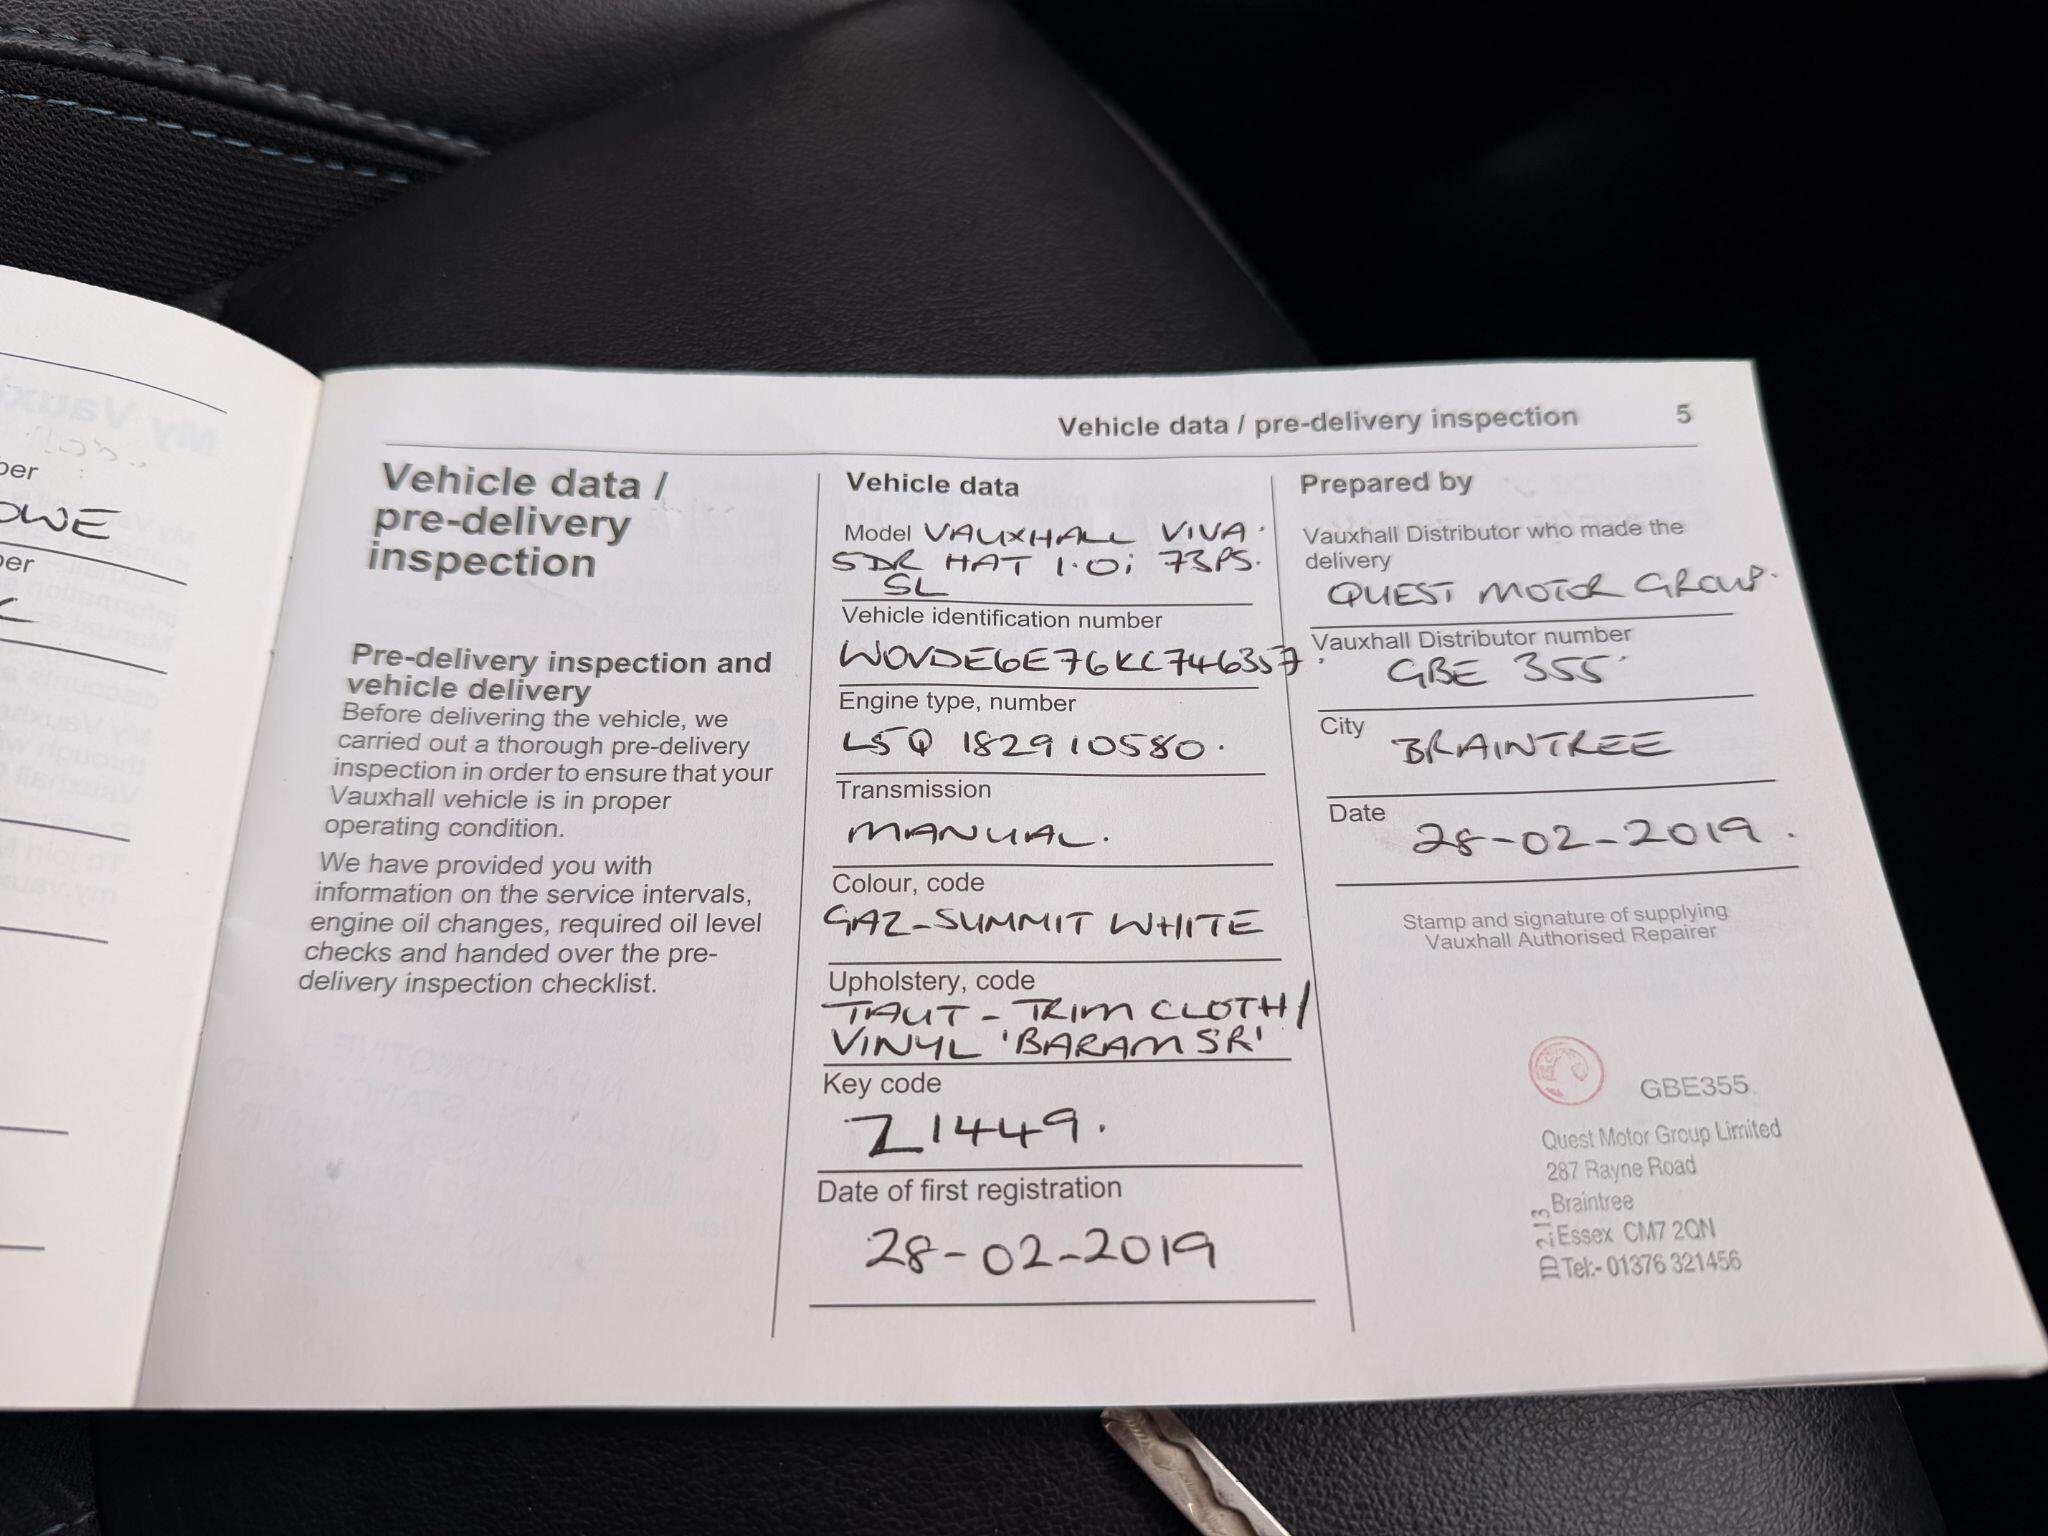 ber
OWE
ber
Vehicle data / pre-delivery inspection 5
Vehicle data /
pre-delivery
inspection
Pre-delivery inspection and
vehicle delivery
Before delivering the vehicle, we
carried out a thorough pre-delivery
inspection in order to ensure that your
Vauxhall vehicle is in proper
operating condition.
We have provided you with
information on the service intervals,
engine oil changes, required oil level
checks and handed over the pre-
delivery inspection checklist.
Vehicle data
Model VAUXHALL VIVA.
5DR HAT 1.0i 73PS.
SL
Vehicle identification number
W0VDE6E76KC746357.
Engine type, number
L5Q 182910580.
Transmission
MANUAL.
Colour, code
GAZ-SUMMIT WHITE
Upholstery, code
TAUT - TRIM CLOTH/
VINYL 'BARAM SR'
Key code
Z1449.
Date of first registration
28-02-2019
Prepared by
Vauxhall Distributor who made the
delivery
QUEST MOTOR GROUP.
Vauxhall Distributor number
GBE 355
City
BRAINTREE
Date
28-02-2019.
Stamp and signature of supplying
Vauxhall Authorised Repairer
GBE355
Quest Motor Group Limited
287 Rayne Road
Braintree
Essex CM7 2QN
Tel:- 01376 321456